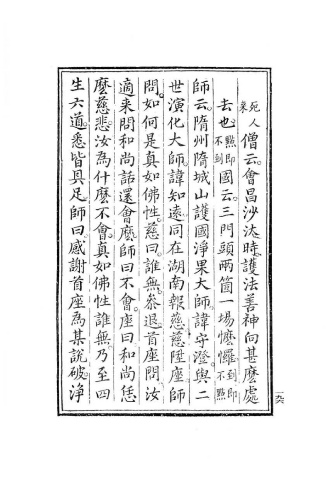 死人來僧云。會昌沙汰時。護法善神向甚麼處
去也。點即不到國云。三門頭兩箇一場懡㦬。到即不點
師云。隋州隋城山護國淨果大師。諱守澄。與二
世演化大師。諱知遠。同在湖南報慈。慈陞座。師
問。如何是真如佛性。慈曰。誰無。參退。首座問。汝
適來問和尚話。還會麼。師曰。不會。座曰。和尚恁
麼慈悲。汝為什麼不會。真如佛性誰無。乃至四
生六道。悉皆具足。師曰。感謝首座為某說破。淨